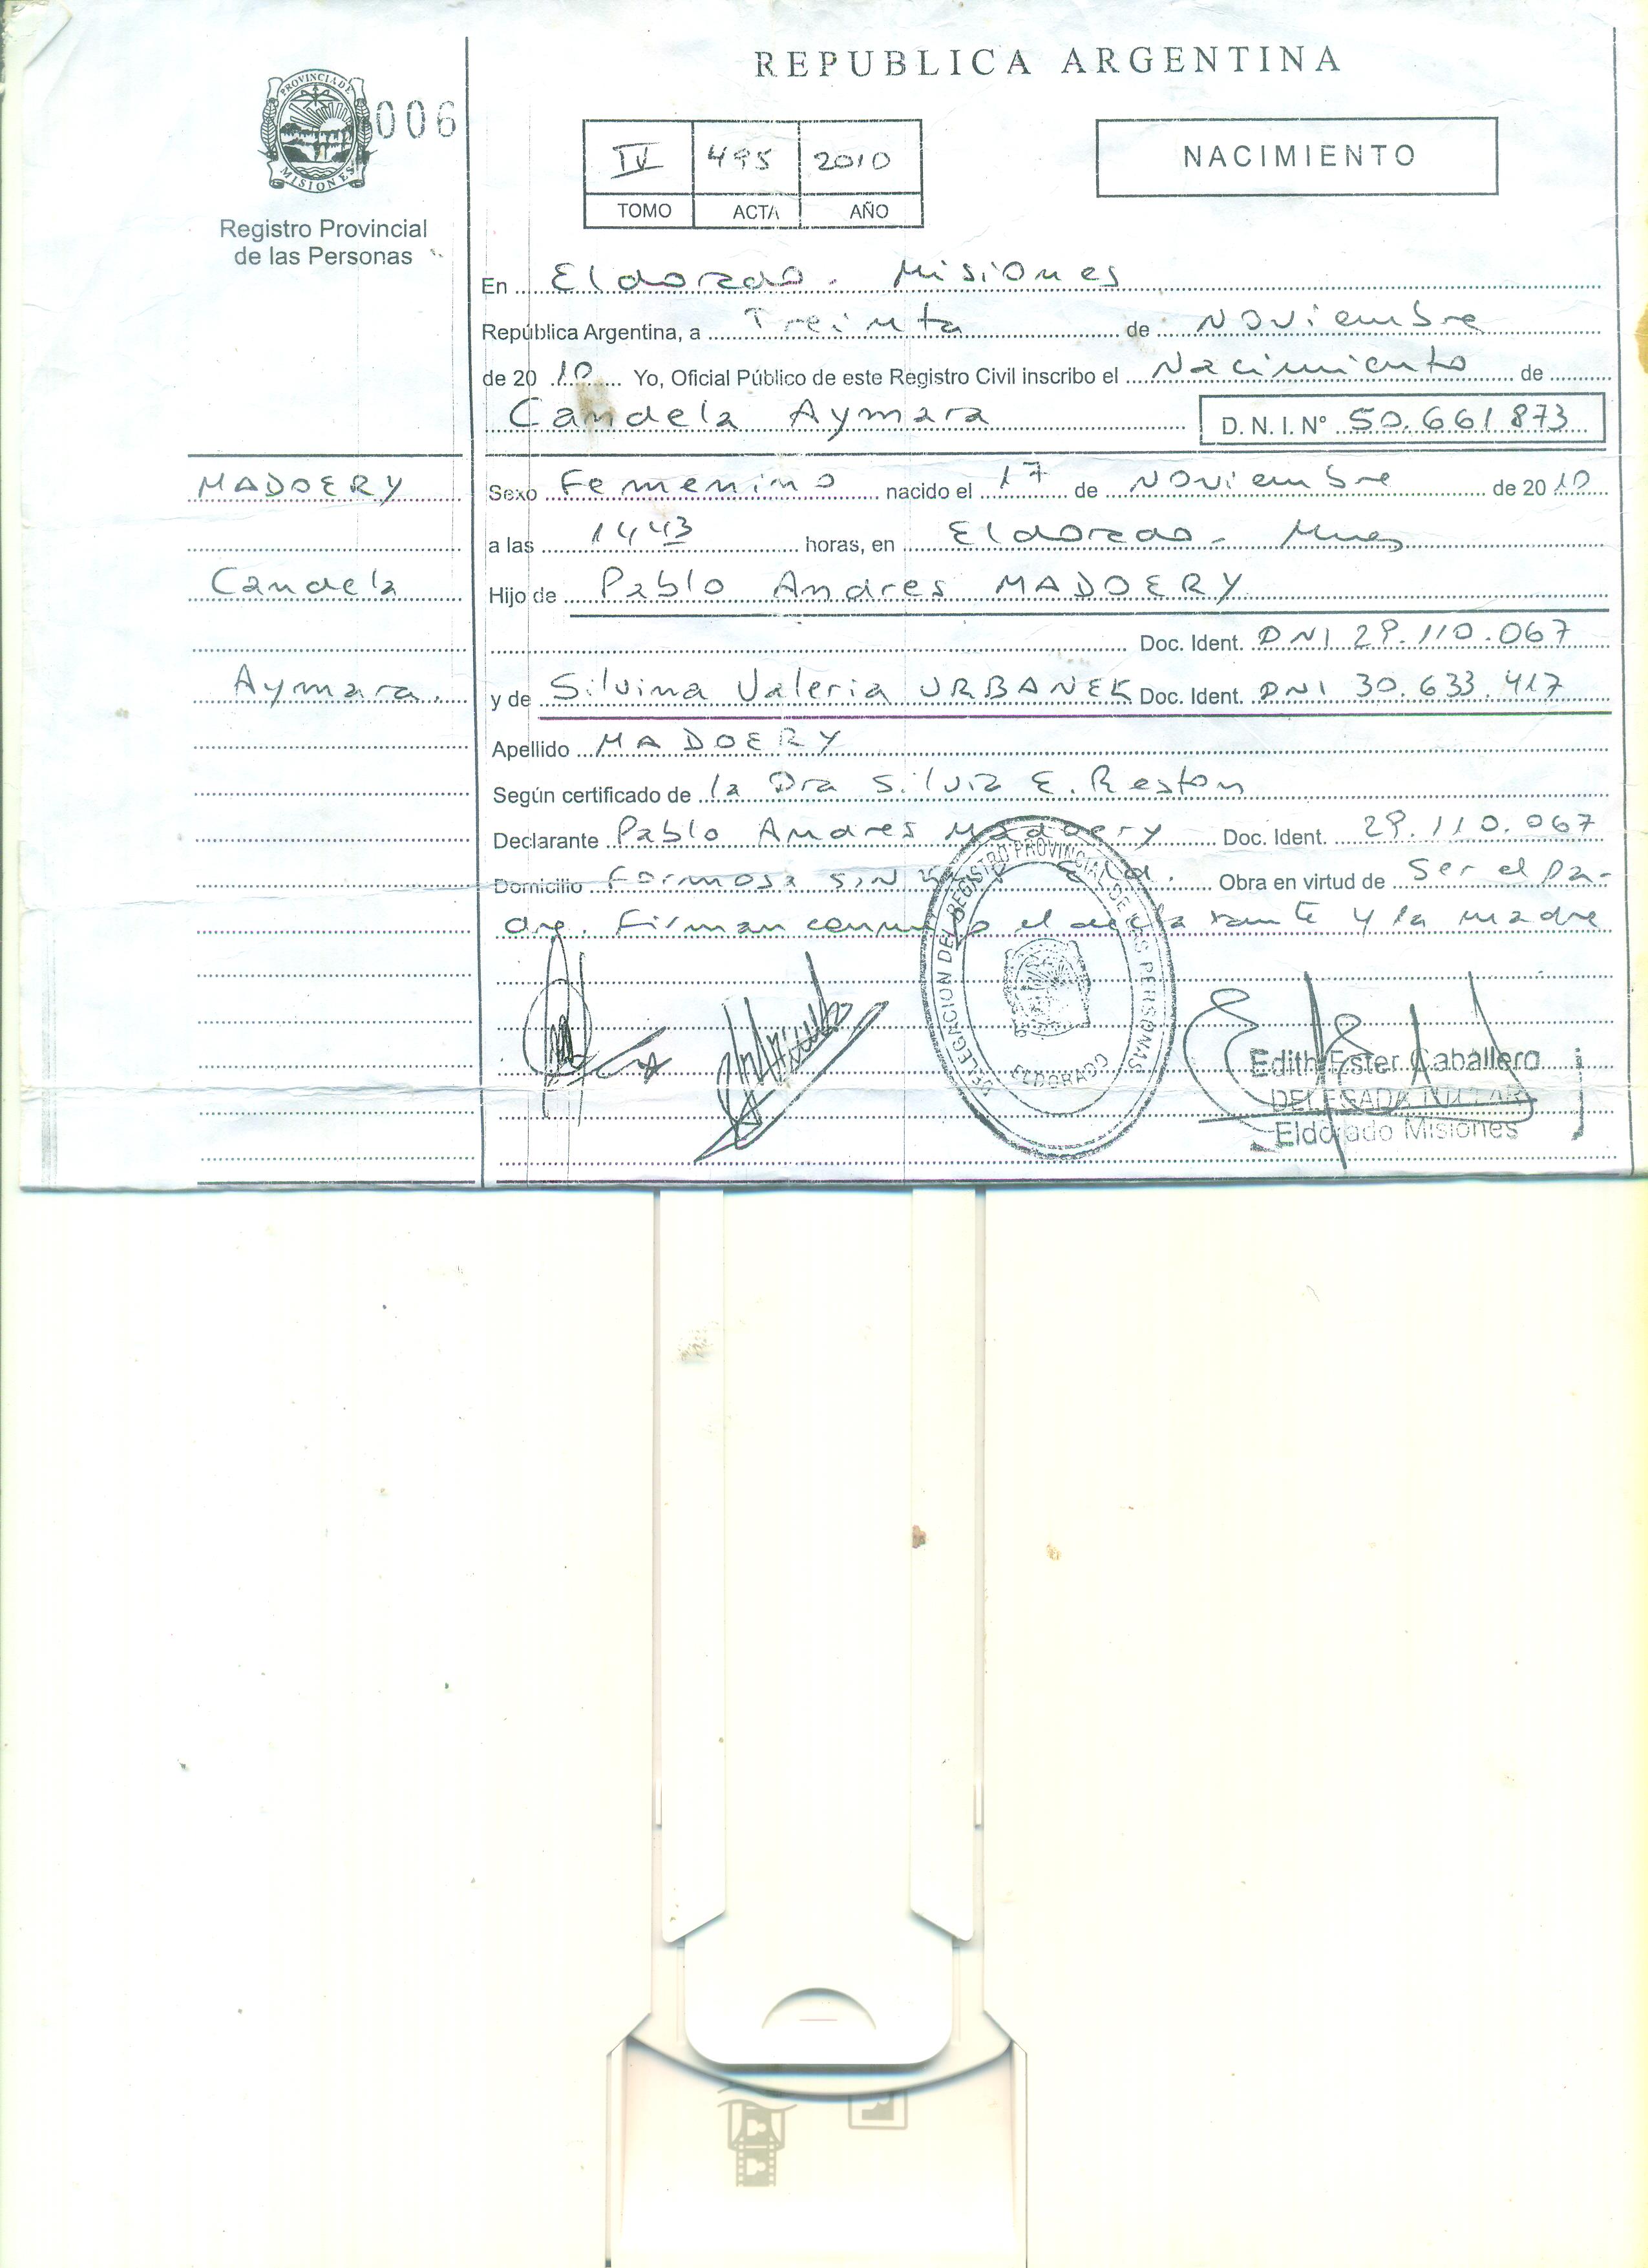 REPUBLICA ARGENTINA
PROVINCIA DE
MISIONES
006
IV 495 2010
TOMO ACTA AÑO
NACIMIENTO
Registro Provincial
de las Personas
En Eldorado. Misiones
República Argentina, a Treinta de Noviembre
de 2010 Yo, Oficial Público de este Registro Civil inscribo el Nacimiento de
Candela Aymara D. N. I. Nº 50.661873
MADOERY
Sexo Femenino nacido el 17 de Noviembre de 2010
a las 1443 horas, en Eldorado - Mnes
Candela
Hijo de Pablo Andres MADOERY
Doc. Ident. DNI 29.110.067
Aymara.
y de Silvina Valeria URBANEK Doc. Ident. DNI 30.633.417
Apellido MADOERY
Según certificado de la Dra Silvia E. Reston
Declarante Pablo Andres Madoery Doc. Ident. 29.110.067
Domicilio Formosa S/N Eld. Obra en virtud de Ser el Pa-
dre. Firman conmigo el declarante y la madre
DELEGACION DEL REGISTRO PROVINCIAL DE LAS PERSONAS
ELDORADO
Edith Ester Caballero
DELEGADA TITULAR
Eldorado Misiones